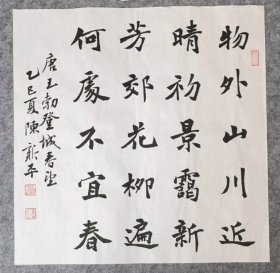 物外山川近
晴初景靄新
芳郊花柳遍
何處不宜春
唐王勃登城春望
乙巳夏陳新平